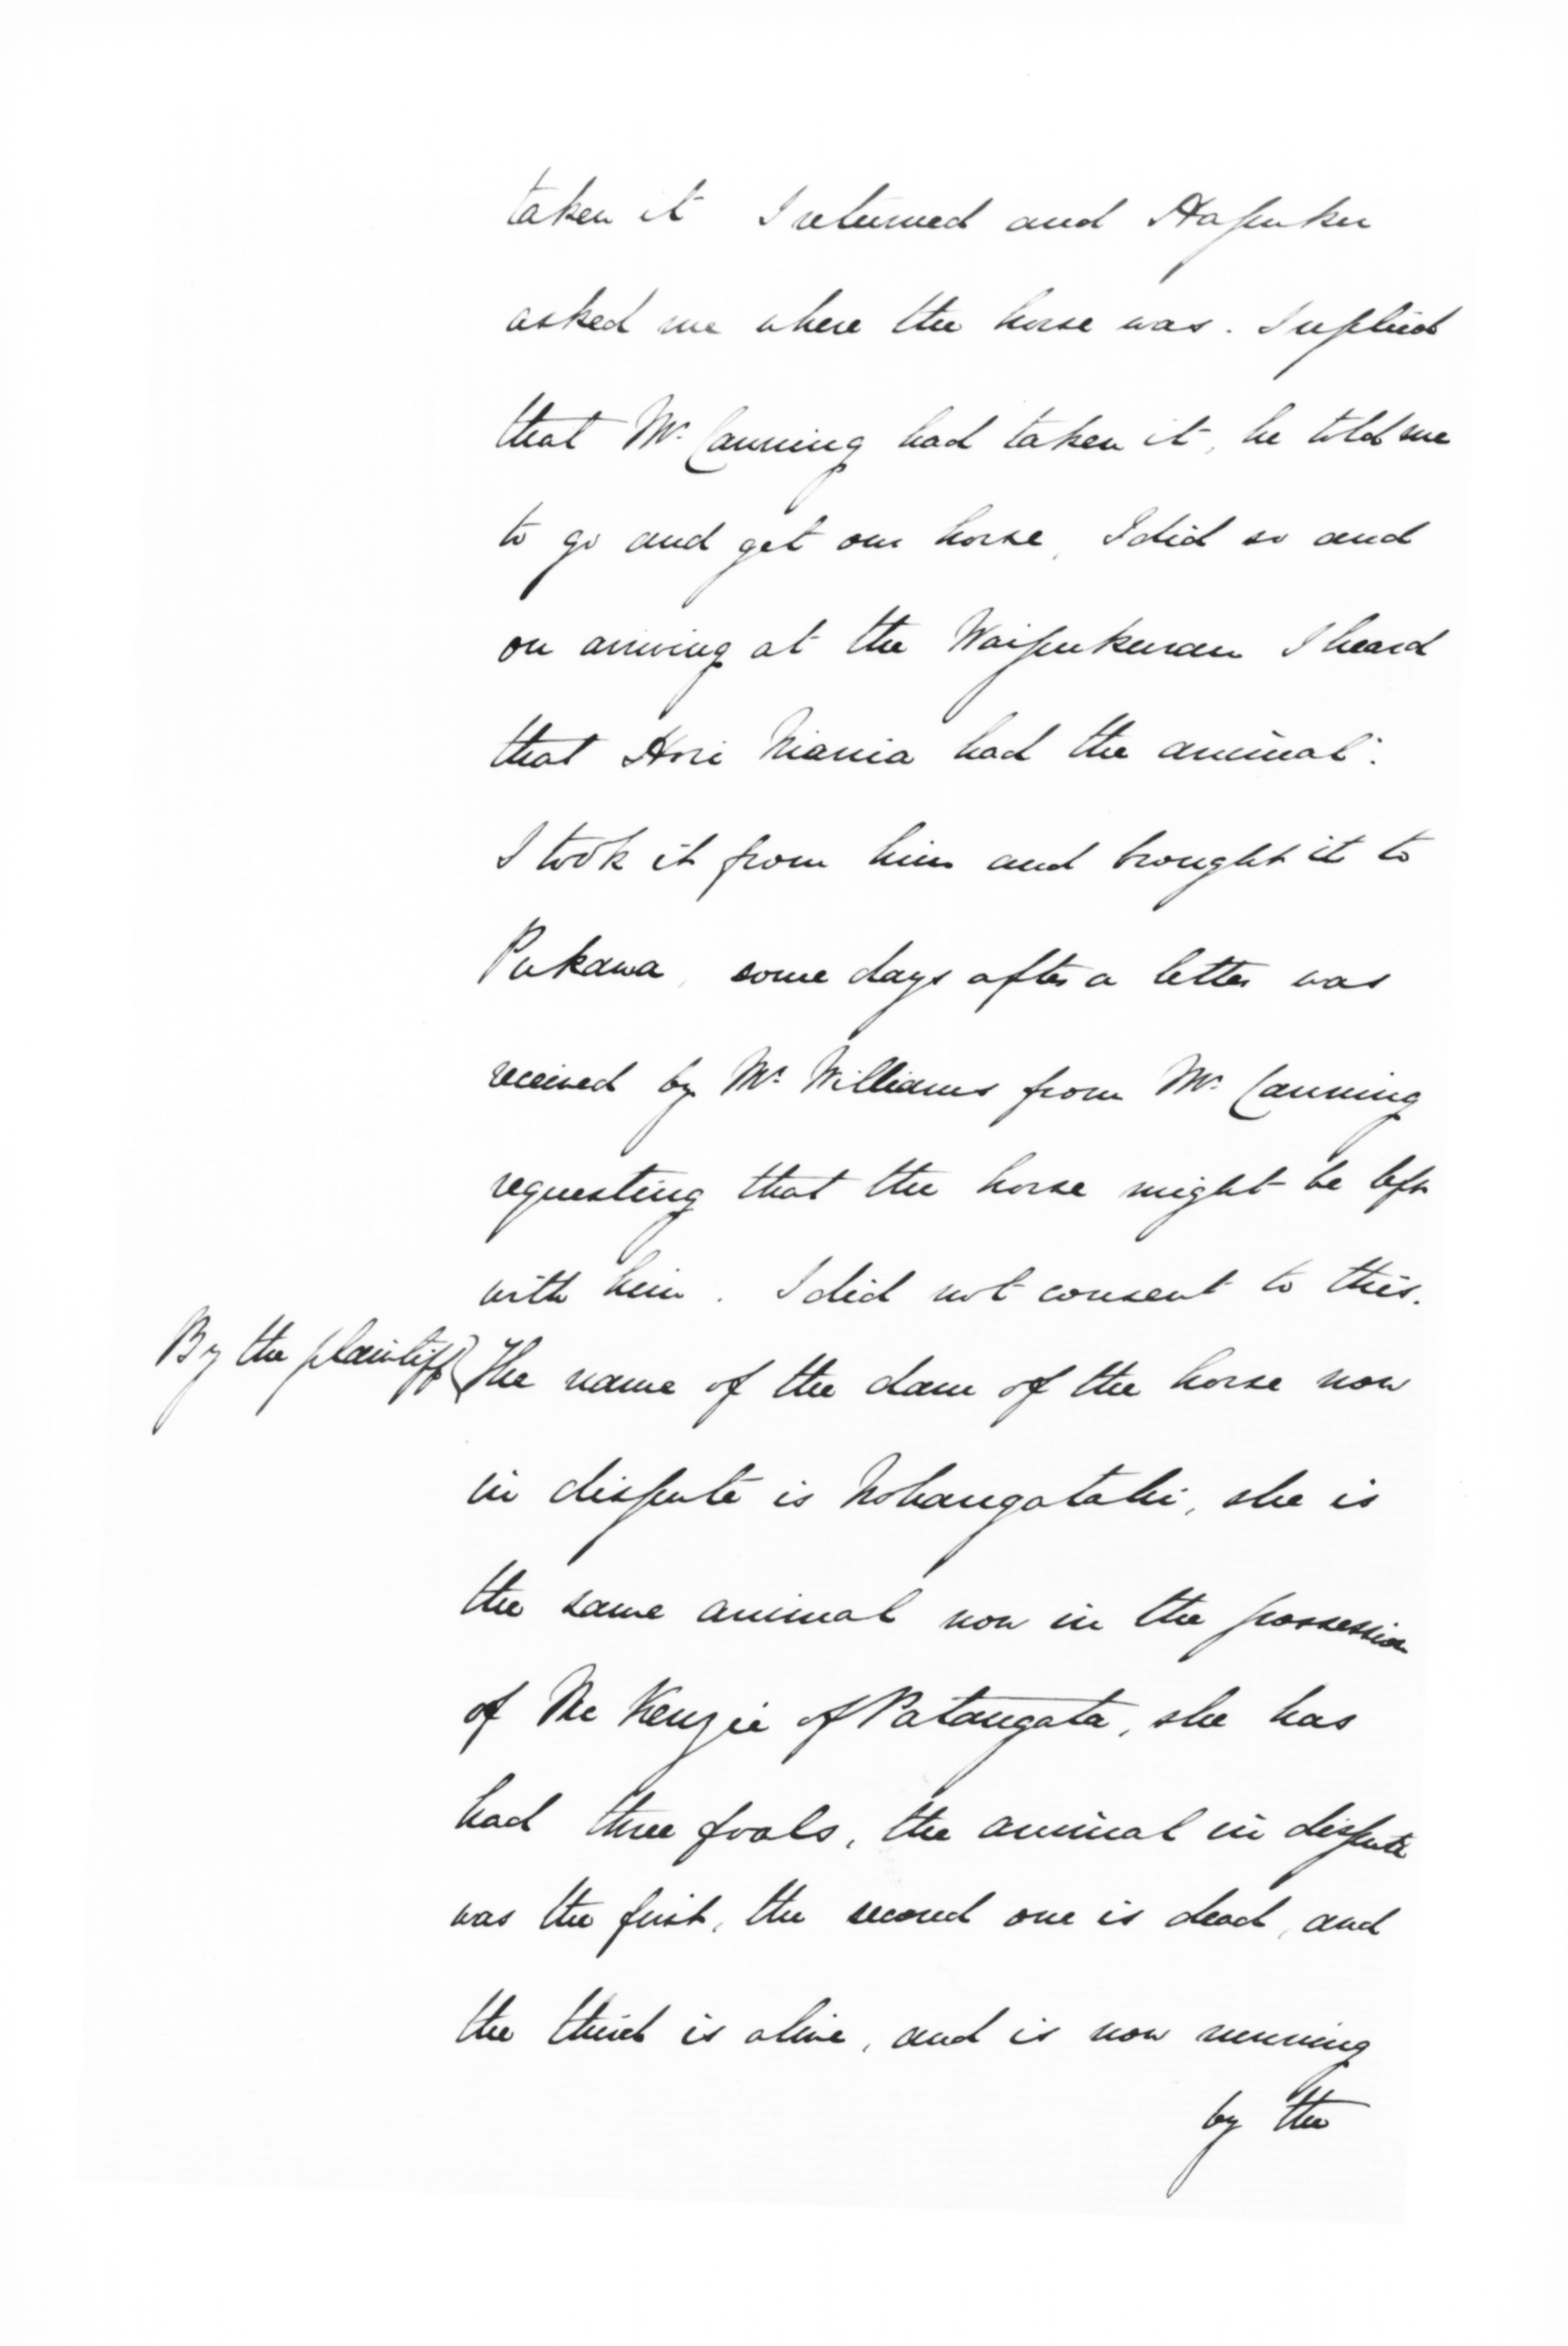 taken it I returned and Hapuku
asked me where the horse was. I replied
that Mr. Canning had taken it, he told me
to go and get our horse, I did so and
on arriving at the Waipukurau I heard
that Hori Niania had the animal.
I took it from him and brought it to
Pukawa, some days after a letter was
received by Mr. Williams from Mr. Canning
requesting that the horse might be left
with him. I did not consent to this.
By the plaintiff} The name of the dam of the horse now
in dispute is Nohangatahi, she is
the same animal now in the possession
of McKenzie of Patangata, she has
had three foals, the animal in dispute
was the first, the second one is dead, and
the third is alive, and is now running
by the